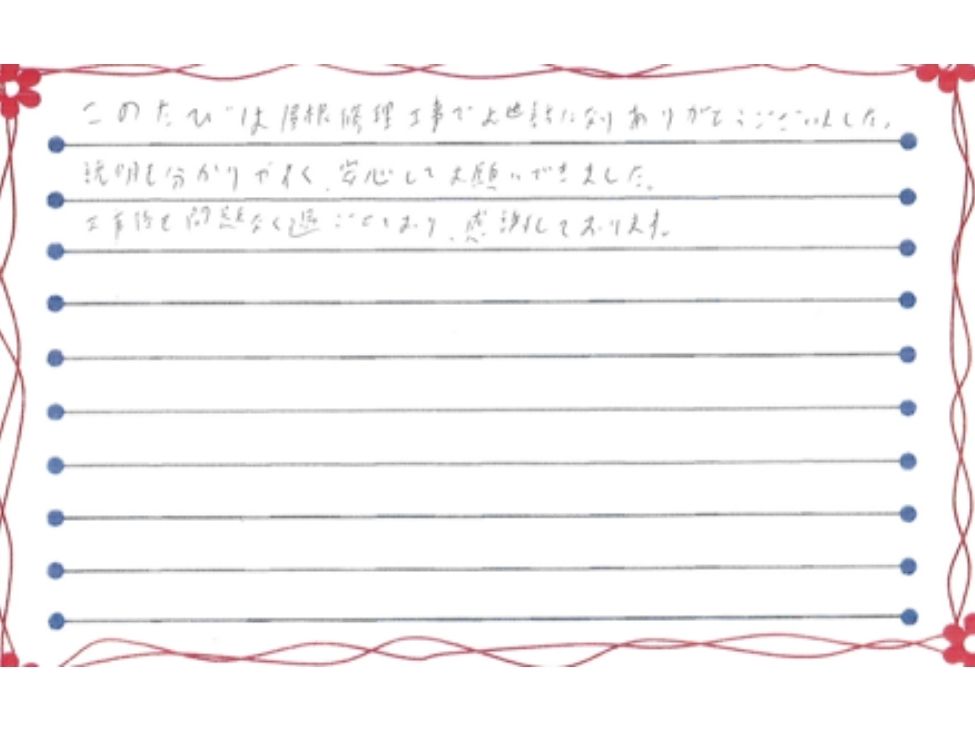 このたびは屋根修理工事でお世話になりありがとうございました。
説明も分かりやすく、安心してお願いできました。
工事後も問題なく過ごせており、感謝しております。